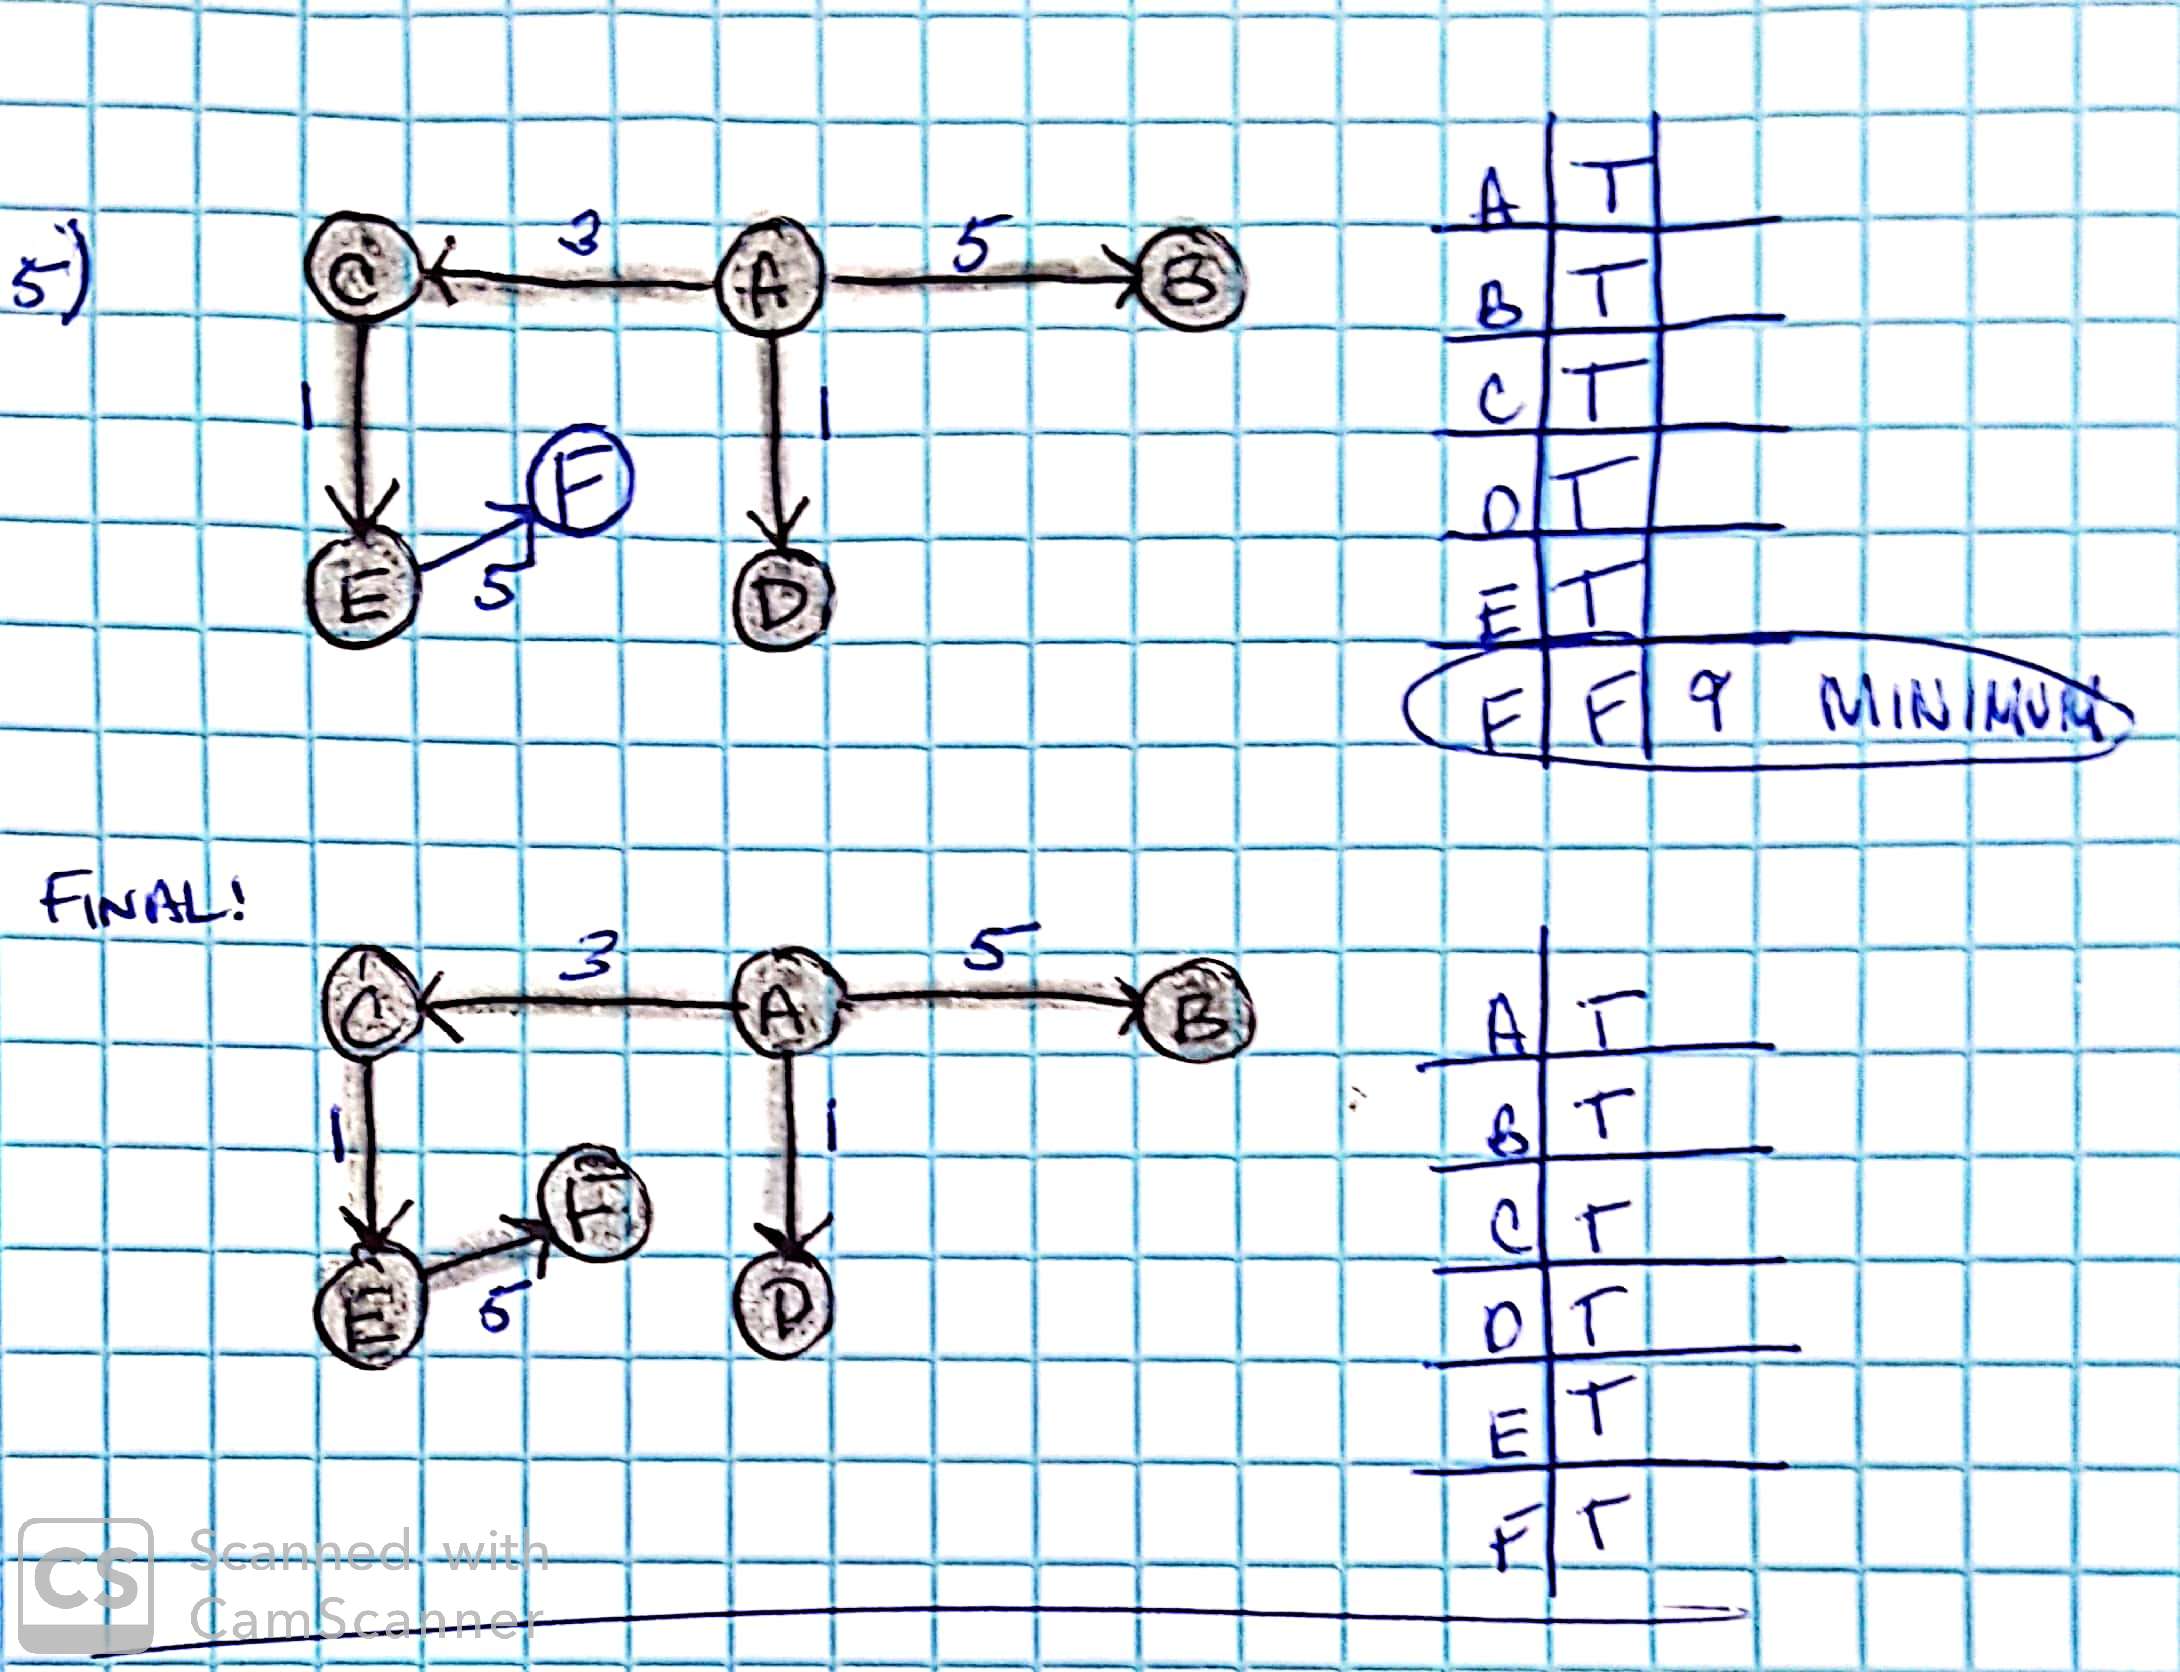 5)
3
5
C
A
B
1
1
F
5
E
D
A T
B T
C T
D T
E T
F F 9 MINIMUM
FINAL!
3
5
C
A
B
1
1
F
5
E
D
A T
B T
C T
D T
E T
F T
CS
Scanned with
CamScanner